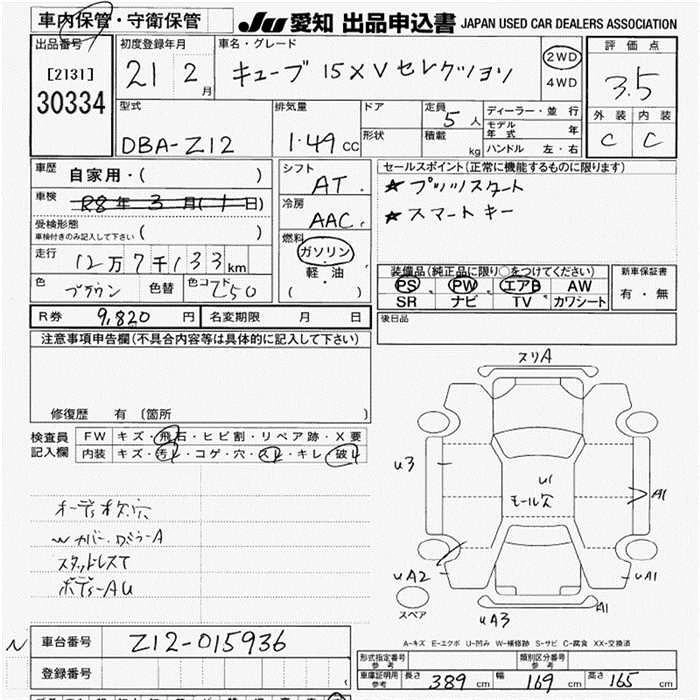 車内保管・守衛保管 JU 愛知 出品申込書 JAPAN USED CAR DEALERS ASSOCIATION
出品番号 初度登録年月 車名・グレード 評価点
[2131] 21 2月 キューブ 15XVセレクション 2WD 3.5
30334 4WD
外装 内装
型式 排気量 ドア 定員 5人 ディーラー・並行
DBA-Z12 1.49cc 形状 積載 kg モデル年式 年 C C
ハンドル 左・右
車歴 自家用・( ) シフト AT. セールスポイント(正常に機能するものに限ります)
車検 R8年3月(1日) 冷房 AAC. ★プッシュスタート
受検形態 ★スマートキー
車検付きのみ記入して下さい ( ) 燃料 ガソリン・
走行 12万7千133km 軽・油 装備品(純正品に限り○をつけてください) 新車保証書
色 ブラウン 色替 色コード Z50 ( ) PS PW エアB AW 有・無
SR ナビ TV カワシート
R券 9,820円 名変期限 月 日 後日品
注意事項申告欄(不具合内容等は具体的に記入して下さい)
修復歴 有 (箇所 )
検査員 FW キズ・飛石・ヒビ割・リペア跡・X要
記入欄 内装 キズ・汚れ・コゲ・穴・スレ・キレ・破れ
スリA
U3
U1
モール欠
A1
UA2
UA1
スペア
UA3
A1
オーディオ欠穴
Wカバー
スタッドレスT
ボディーAU
A-キズ E-エクボ U-凹み W-補修跡 S-サビ C-腐食 XX-交換済
N 車台番号 Z12-015936
登録番号
形式指定番号 参考 類別区分番号 参考
車庫証明用 参考 長さ 389cm 幅 169cm 高さ 165cm